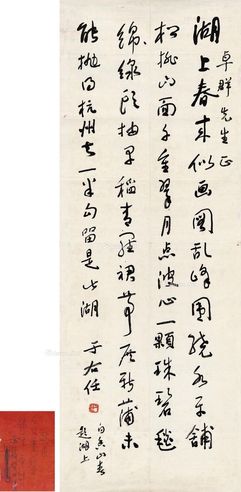 卓群先生正
湖上春来似画圖乱峰圍繞水平鋪
松排山面千重翠月点波心一顆珠碧毯
綿線頭抽早稻青羅裙帶展新蒲未
能抛得杭州去一半勾留是此湖 于右任
白香山春
題湖上